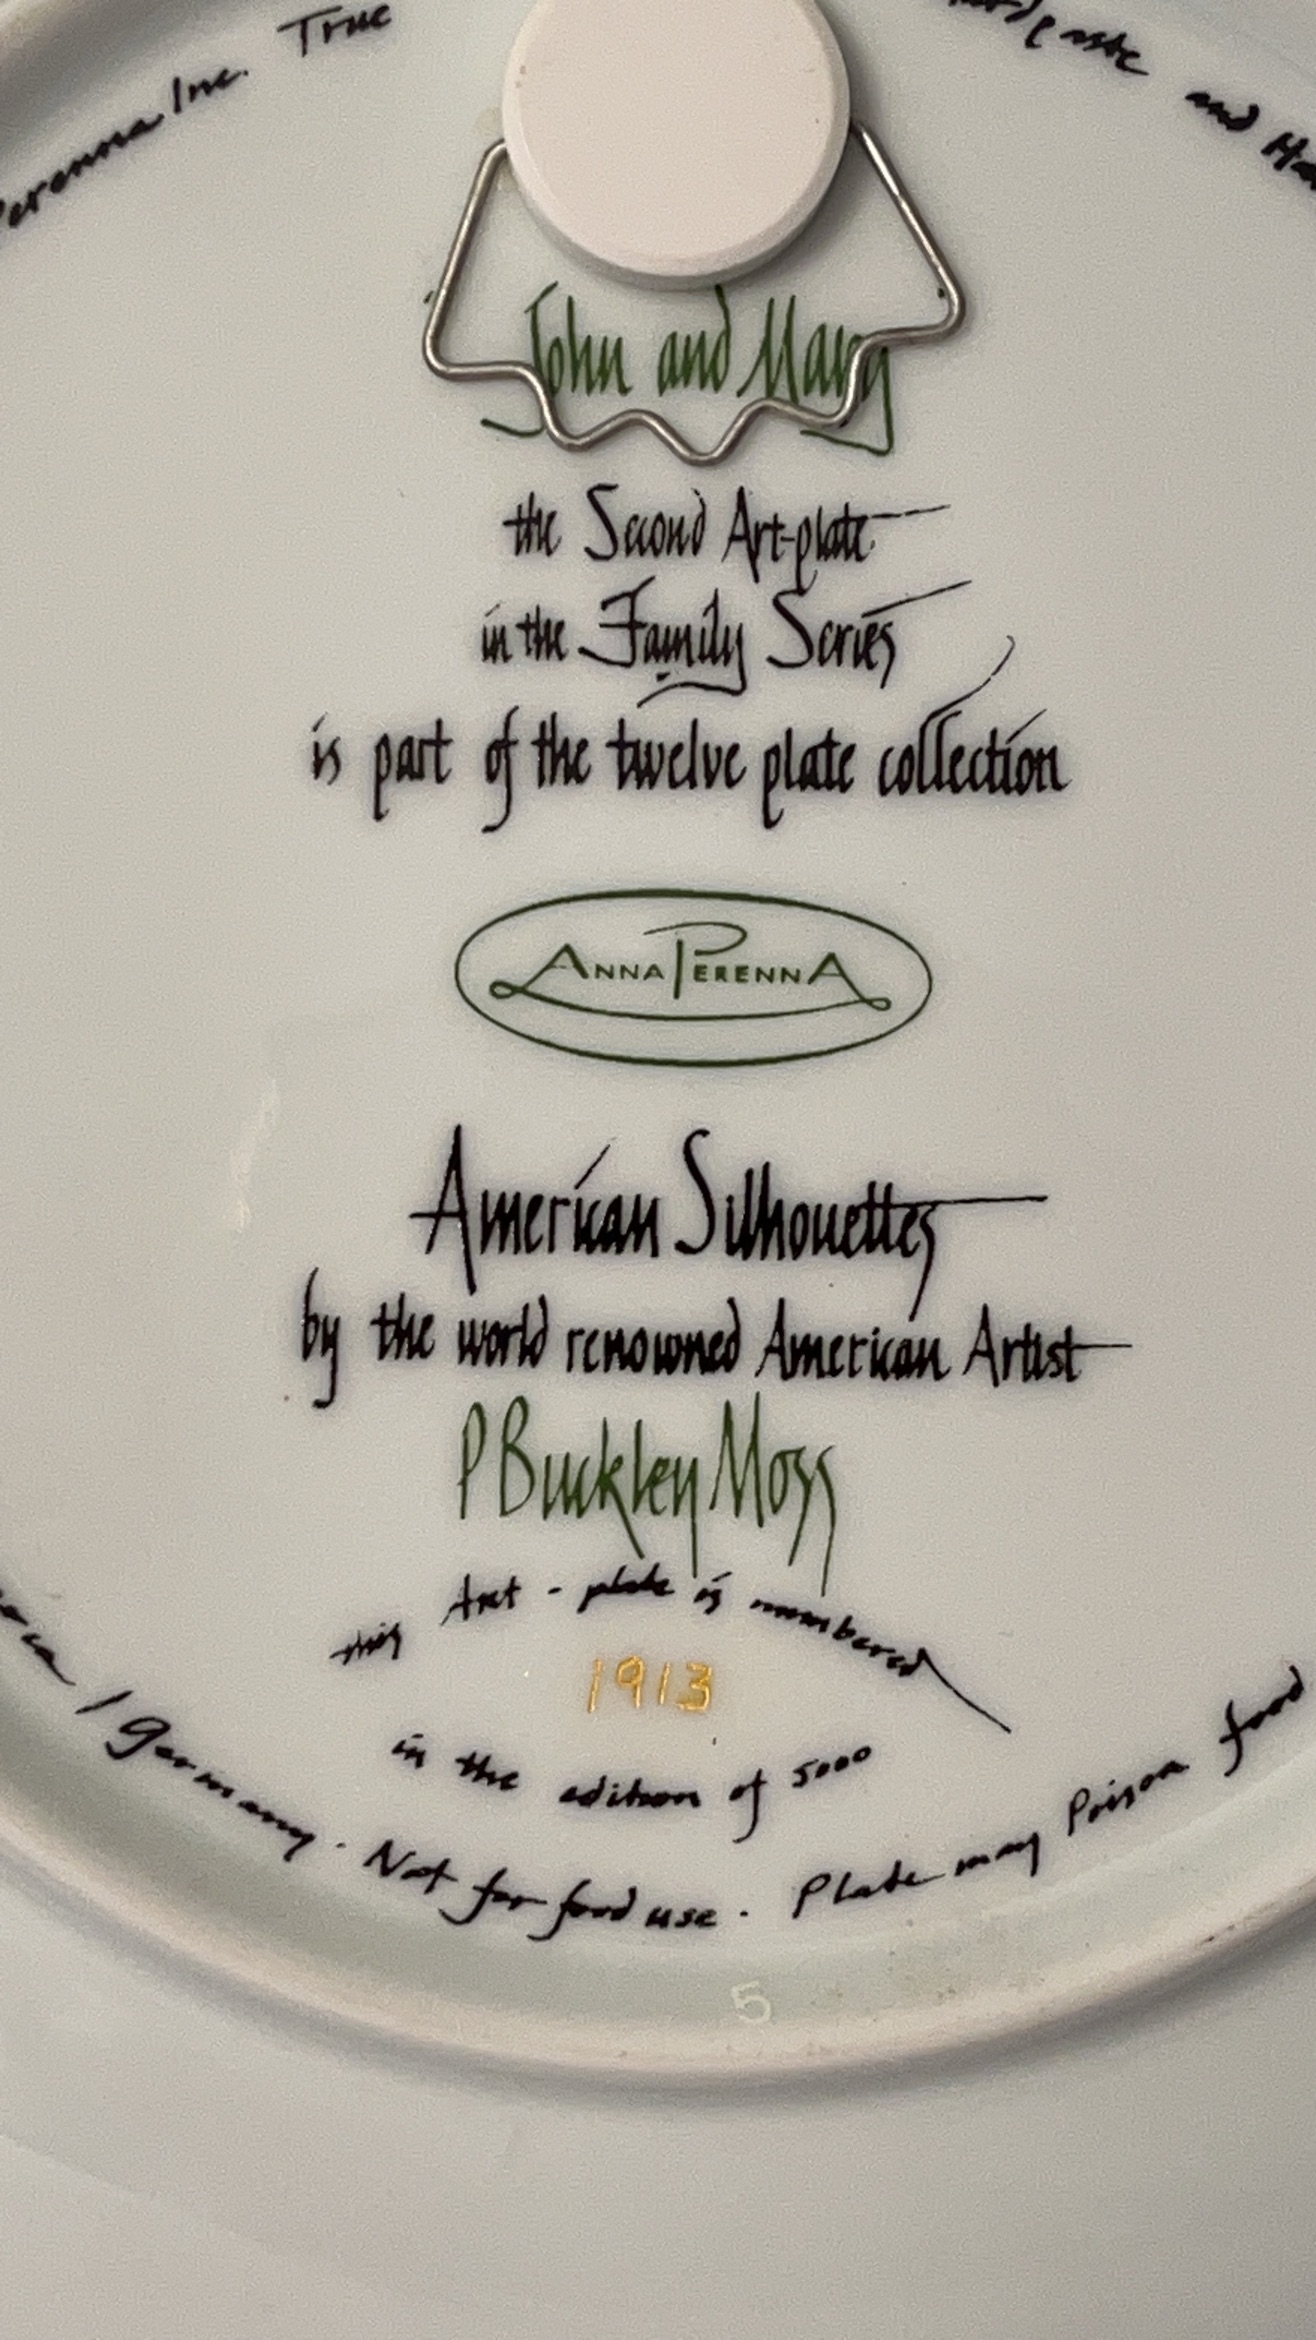 Perenna Inc. True
and
John and Mary
the Second Art-plate
in the Family Series
is part of the twelve plate collection
ANNA PERENNA
American Silhouettes
by the world renowned American Artist
P Buckley Moss
this Art - plate is numbered
1913
in the edition of 5000
/ Germany. Not for food use. Plate may Poison food
5